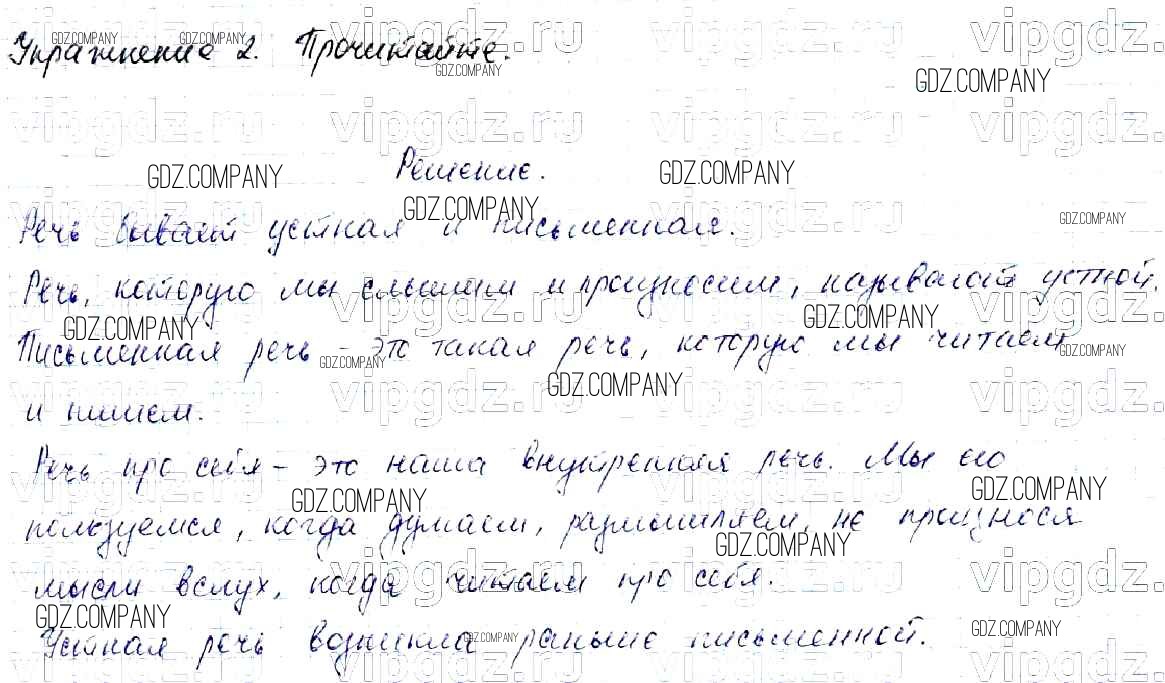 Упражнение 2. Прочитайте.
Решение.
Речь бывает устная и письменная.
Речь, которую мы слышим и произносим, называют устной.
Письменная речь - это такая речь, которую мы читаем
и пишем.
Речь про себя - это наша внутренняя речь. Мы ею
пользуемся, когда думаем, размышляем, не произнося
мысли вслух, когда читаем про себя.
Устная речь возникла раньше письменной.
GDZ.COMPANY
vipgdz.ru